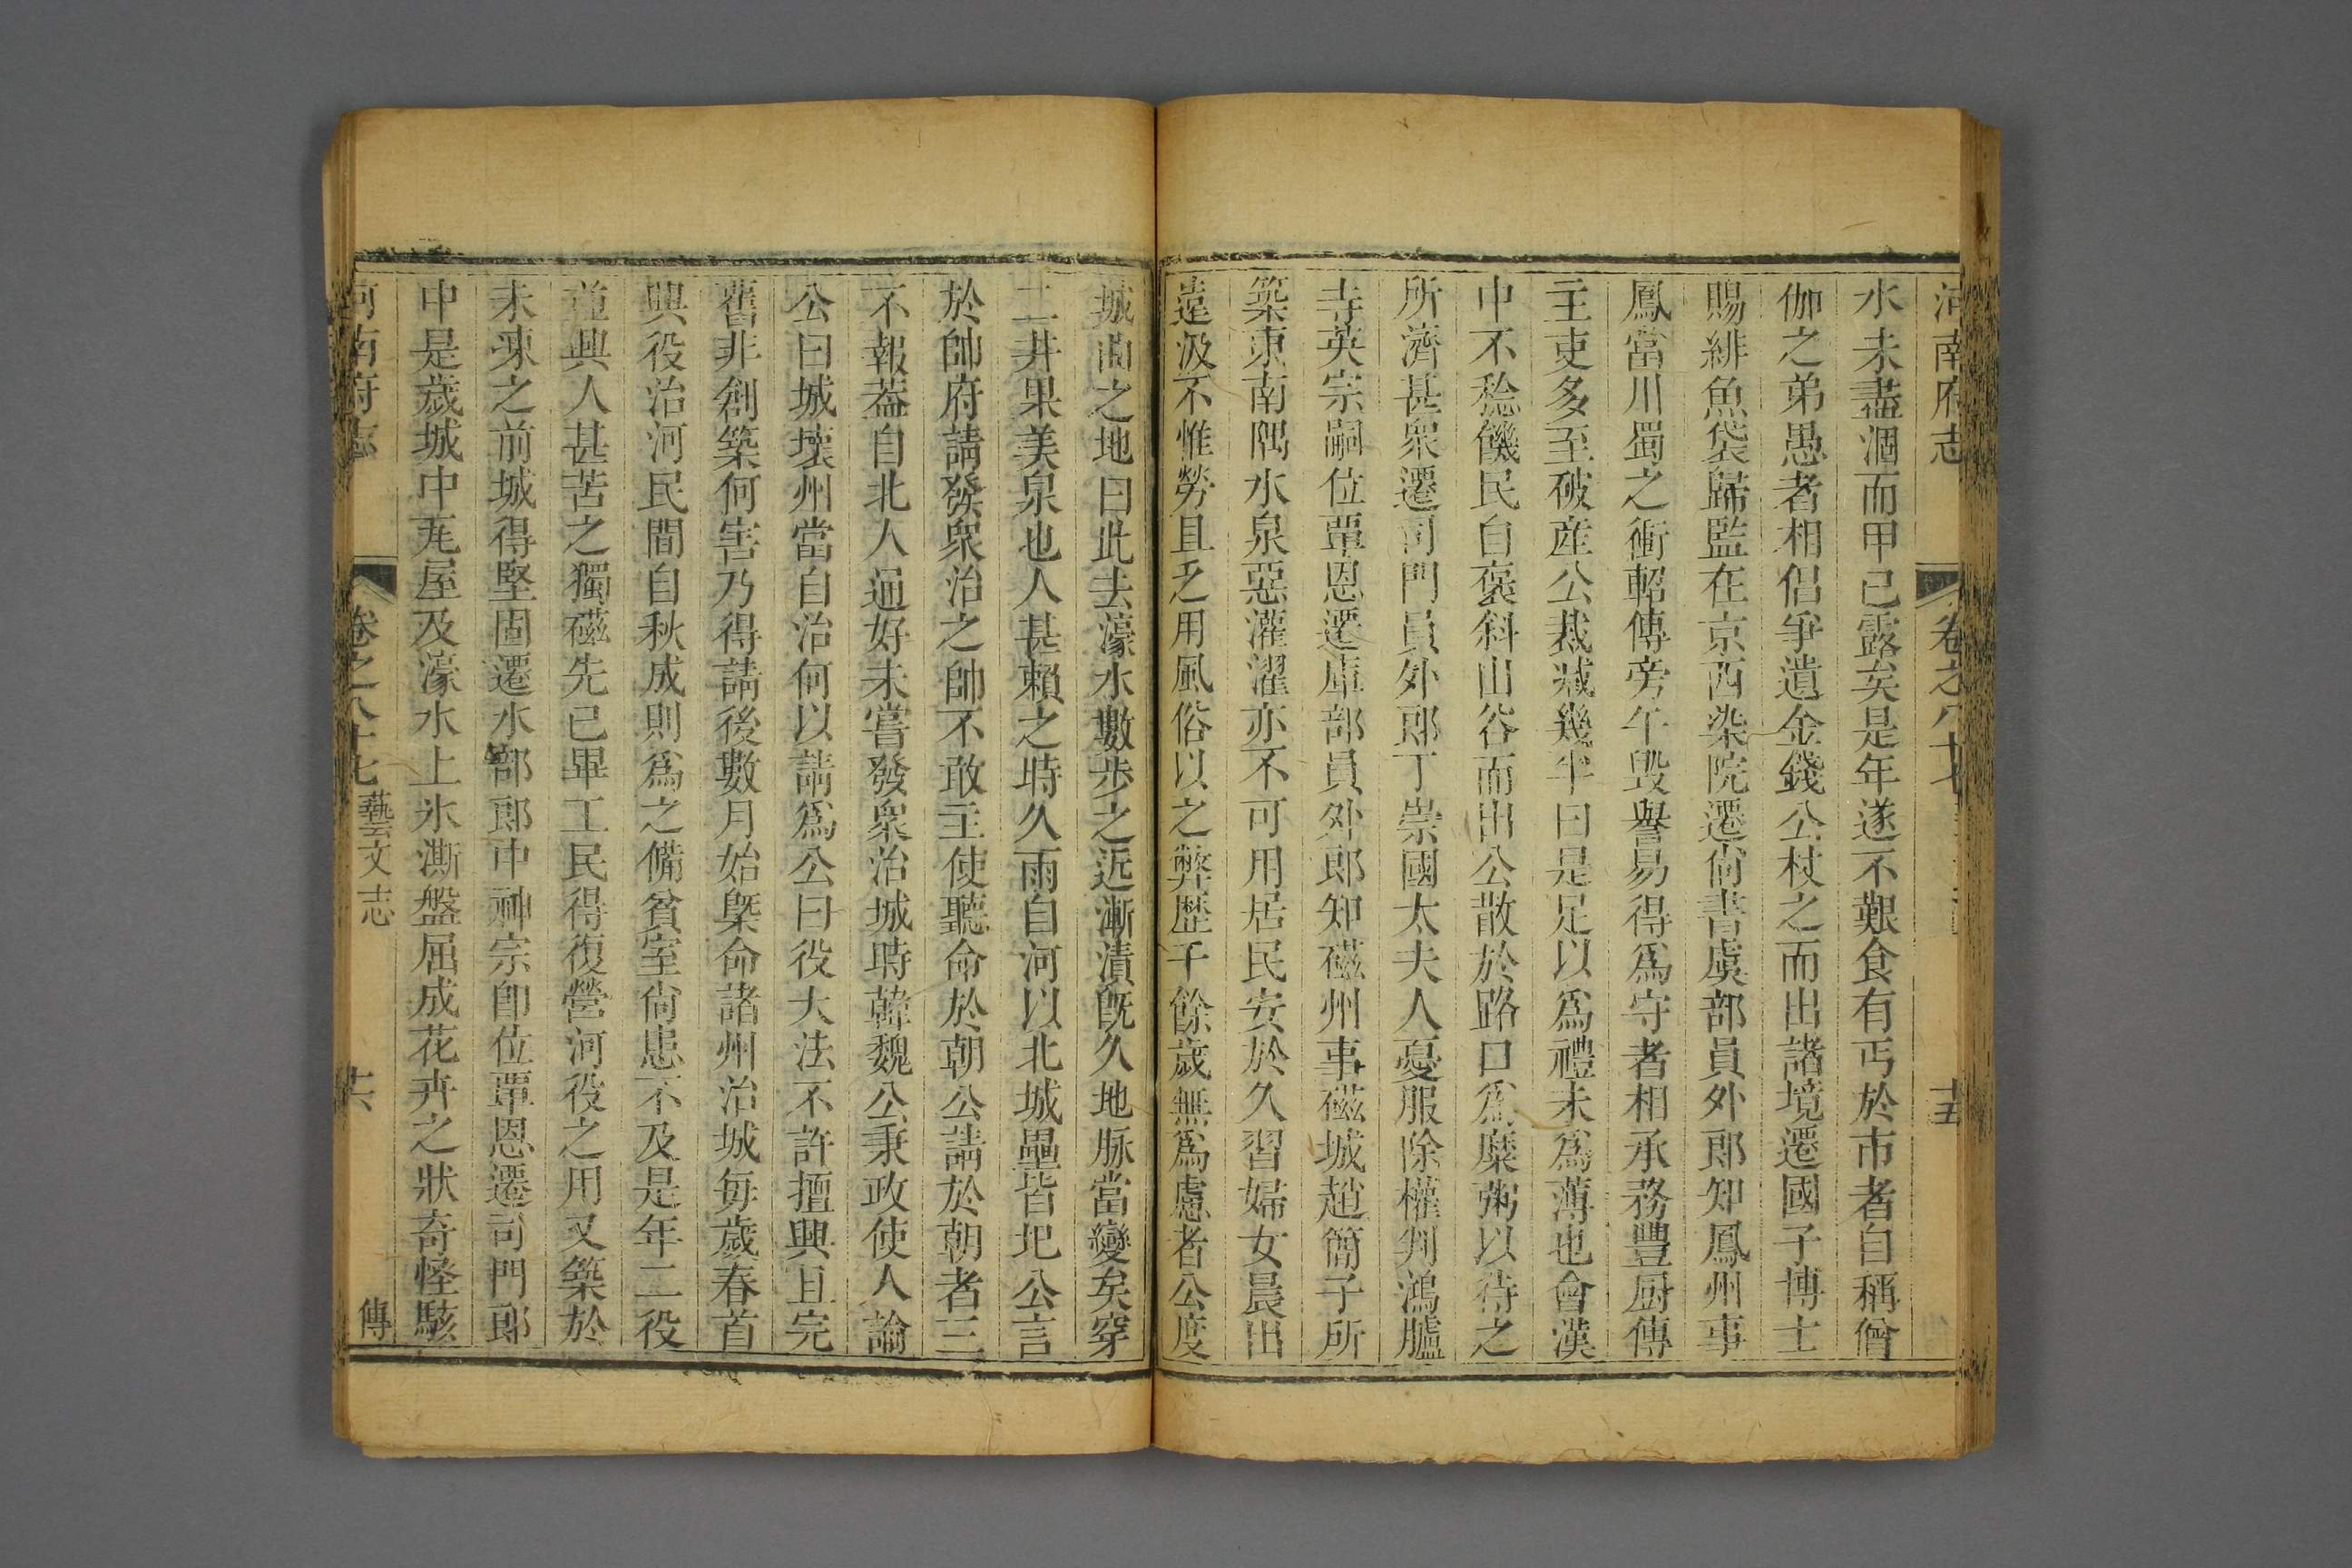 河南府志 卷之八十七 十五
水未盡涸而甲已露矣是年遂不艱食有丐於市者自稱僧
伽之弟愚者相倡爭遺金錢公杖之而出諸境遷國子博士
賜緋魚袋歸監在京西染院遷尚書虞部員外郎知鳳州事
鳳當川蜀之衝軺傳旁午毀譽易得爲守者相承務豐厨傳
主吏多至破産公裁减幾半曰是足以爲禮未爲薄也會漢
中不稔饑民自褒斜山谷而出公散於路口爲糜粥以待之
所濟甚衆遷司門員外郎丁崇國太夫人憂服除權判鴻臚
寺英宗嗣位覃恩遷庫部員外郎知磁州事磁城趙簡子所
築東南隅水泉惡灌濯亦不可用居民安於久習婦女晨出
遠汲不惟勞且乏用風俗以之弊歷千餘歲無爲慮者公度
城曲之地曰此去濠水數步之近漸漬旣久地脉當變矣穿
二井果美泉也人甚賴之時久雨自河以北城壘皆圯公言
於帥府請發衆治之帥不敢主使聽命於朝公請於朝者三
不報葢自北人通好未嘗發衆治城時韓魏公秉政使人諭
公曰城壞州當自治何以請爲公曰役大法不許擅興且完
舊非創築何害乃得請後數月始槩命諸州治城每歲春首
興役治河民間自秋成則爲之備貧室尚患不及是年二役
並興人甚苦之獨磁先已畢工民得復營河役之用又築於
未凍之前城得堅固遷水部郎中神宗卽位覃恩遷司門郎
中是歲城中瓦屋及濠水上氷澌盤屈成花卉之狀奇怪駭
河南府志 卷之八十七 藝文志 十六 傳